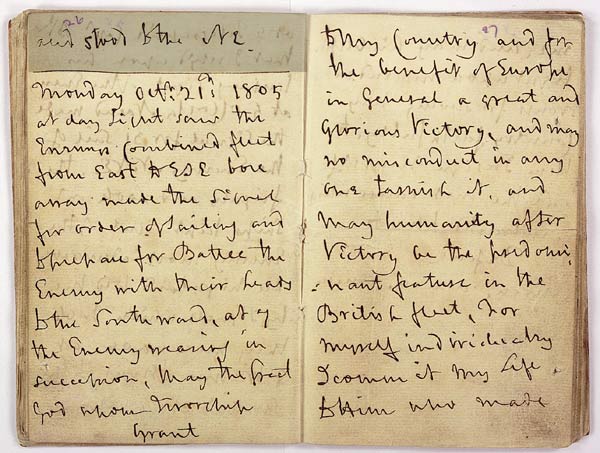 26
and stood to the NE.
Monday Octr. 21st 1805
at day Light saw the
Enemys Combined fleet
from East to ESE bore
away made the Signal
for order of Sailing and
to prepare for Battle the
Enemy with their heads
to the Southward, at 7
the Enemy wearing in
succession, May the Great
God whom I worship
Grant
27
to my Country and for
the benefit of Europe
in General a great and
Glorious Victory, and may
no misconduct in any
one tarnish it, and
may humanity after
Victory be the predomi
nant feature in the
British fleet, For
myself individually
I commit my Life
to Him who made